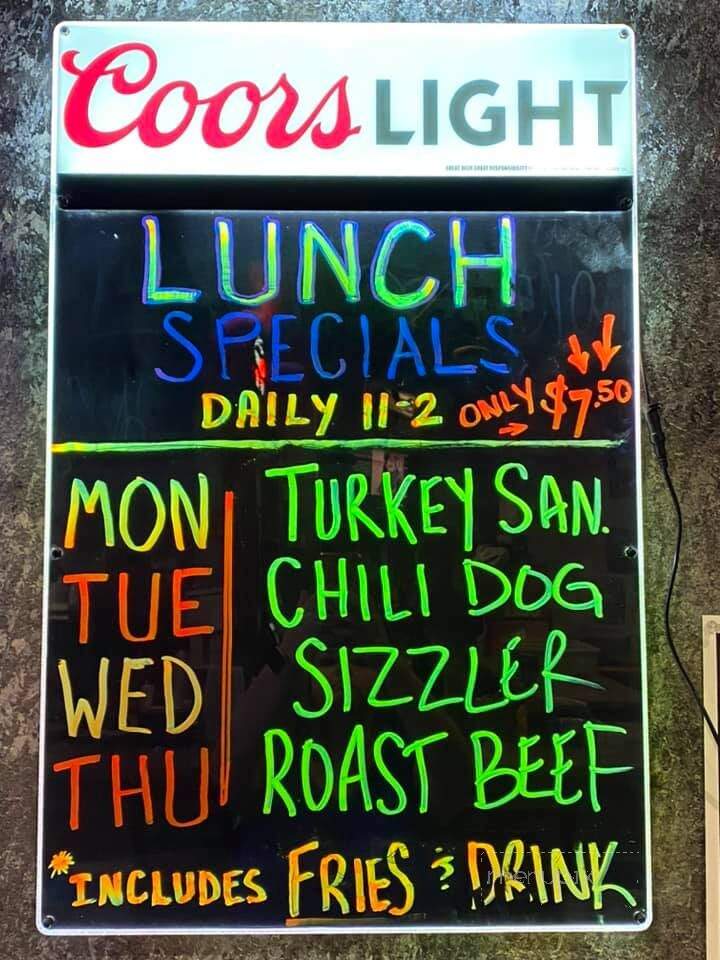 Coors LIGHT
LUNCH
SPECIALS
DAILY 11-2 ONLY $7.50
MON TURKEY SAN.
TUE CHILI DOG
WED SIZZLER
THU ROAST BEEF
*INCLUDES FRIES & DRINK